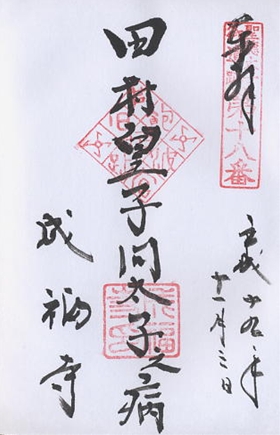 奉拝
第十八番
平成十九年
十一月三日
田村皇子問太子之病
成福寺